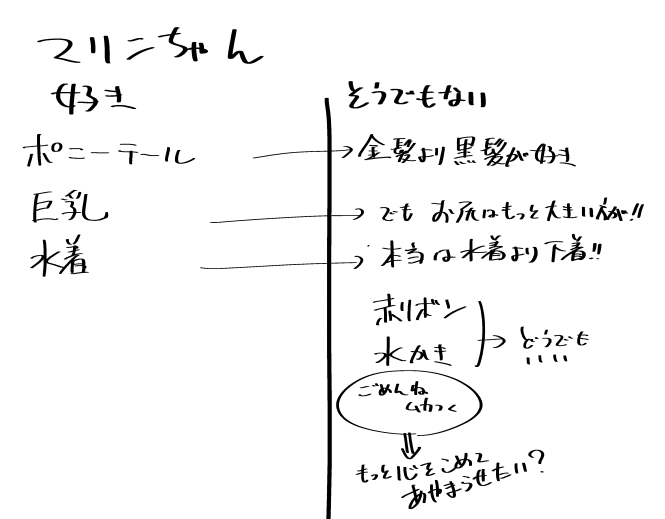 マリンちゃん
好き
そうでもない
ポニーテール
金髪より黒髪が好き
巨乳
でも お尻はもっと大きい方が!!
水着
本当は水着より下着!!
赤リボン
水かき
どうでも
ごめんね
ムカつく
もっと心をこめて
あやまらせたい?